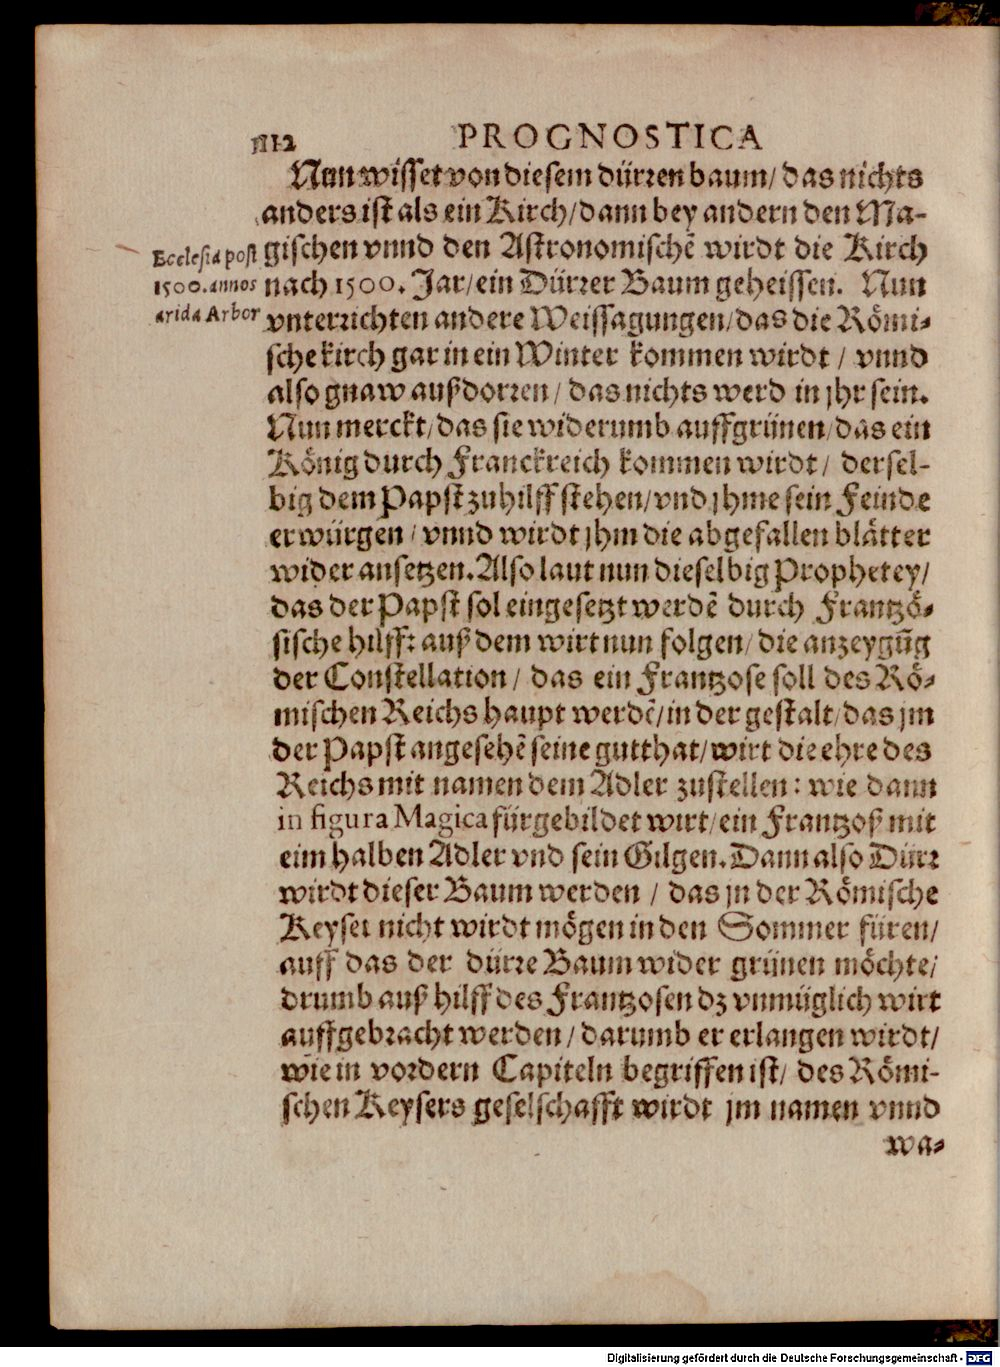 112 PROGNOSTICA
Nun wisset von diesem dürren baum/ das nichts
anders ist als ein Kirch/ dann bey andern den Ma-
Ecclesia post
1500. annos
arida Arbor
gischen vnnd den Astronomischẽ wirdt die Kirch
nach 1500. Jar/ ein Dürrer Baum geheissen. Nun
vnterrichten andere Weissagungen/ das die Römi-
sche kirch gar in ein Winter kommen wirdt / vnnd
also gnaw außdorren / das nichts werd in jhr sein.
Nun merckt/ das sie widerumb auffgrünen/ das ein
König durch Franckreich kommen wirdt/ dersel-
big dem Papst zu hilff stehen/ vnd jhme sein Feinde
erwürgen / vnnd wirdt jhm die abgefallen blätter
wider ansetzen. Also laut nun dieselbig Prophetey/
das der Papst sol eingesetzt werdẽ durch Frantzö-
sische hilff: auß dem wirt nun folgen/ die anzeygũg
der Constellation / das ein Frantzose soll des Rö-
mischen Reichs haupt werdẽ/ in der gestalt/ das jm
der Papst angesehẽ seine gutthat/ wirt die ehre des
Reichs mit namen dem Adler zustellen : wie dann
in figura Magica fürgebildet wirt/ ein Frantzoß mit
eim halben Adler vnd sein Gilgen. Dann also Dürr
wirdt dieser Baum werden / das jn der Römische
Keyser nicht wirdt mögen in den Sommer füren/
auff das der dürre Baum wider grünen möchte/
drumb auß hilff des Frantzosen dz vnmüglich wirt
auffgebracht werden / darumb er erlangen wirdt/
wie in vordern Capiteln begriffen ist/ des Römi-
schen Keysers geselschafft wirdt jm namen vnnd
wa-
Digitalisierung gefördert durch die Deutsche Forschungsgemeinschaft - DFG